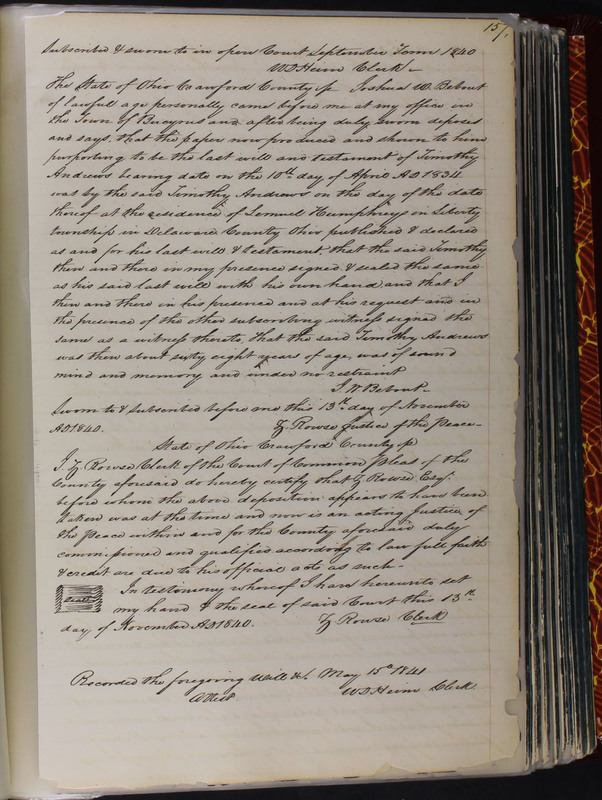 151.
Subscribed & sworn to in open Court September Term 1840
W D Heim Clerk
The State of Ohio Crawford County ss Joshua W. Bebout
of lawful age personally came before me at my office in
the Town of Bucyrus and after being duly sworn deposes
and says, that the paper now produced and shown to him
purporting to be the last will and testament of Timothy
Andrews bearing date on the 10th day of April AD 1834
was by the said Timothy Andrews on the day of the date
thereof at the residence of Lemuel Humphreys in Liberty
township in Delaware County Ohio published & declared
as and for his last will & testament that the said Timothy
then and there in my presence signed & sealed the same
as his said last will with his own hand and that I
then and there in his presence and at his request and in
the presence of the other subscribing witness signed the
same as a witness thereto, that the said Timothy Andrews
was then about sixty eight years of age, was of sound
mind and memory and under no restraint
J W Bebout
Sworn to & subscribed before me this 13th day of November
AD 1840. Z. Rowse Justice of the Peace
State of Ohio Crawford County ss
I. Z Rowse Clerk of the Court of Common Pleas of the
County aforesaid do hereby certify that Z Rowse Esqr.
before whom the above deposition appears to have been
taken was at the time and now is an acting Justice of
the Peace within and for the County aforesaid duly
commissioned and qualified according to law full faith
& credit are due to his official acts as such
Seal
In testimony whereof I have hereunto set
my hand & the seal of said Court this 13th
day of November AD 1840. Z Rowse Clerk
Recorded the foregoing Will &c. May 15th 1841
Attest W D Heim Clerk